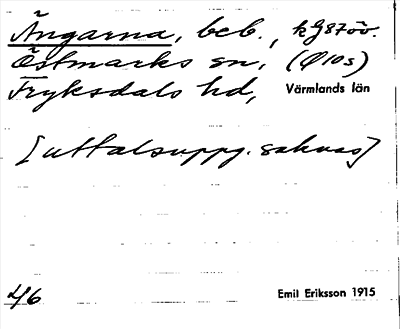 Ängarna, beb., k 9870v.
Östmarks sn, (Ø 10s)
Fryksdals hd, Värmlands län
[uttalsuppg. saknas]
4/6 Emil Eriksson 1915